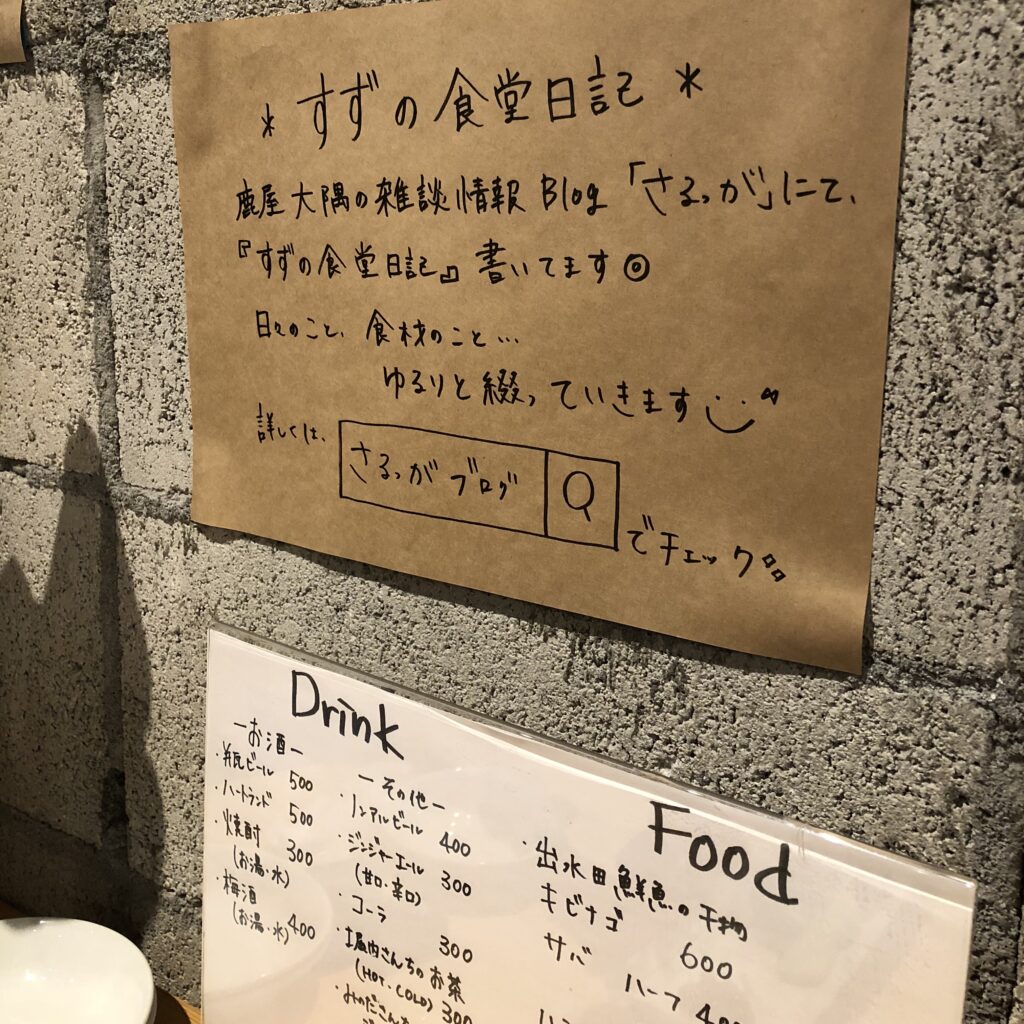 * すずの食堂日記 *
鹿屋大隅の雑談情報Blog「さるっが」にて、
『すずの食堂日記』書いてます◎
日々のこと、食材のこと…
ゆるりと綴っていきます
詳しくは、さるっがブログ でチェック
Drink
ーお酒ー
・瓶ビール 500
・ハートランド 500
・焼酎 300
(お湯・水)
・梅酒 400
(お湯・水)
ーその他ー
・ノンアルビール 400
・ジンジャーエール 300
(甘口・辛口)
・コーラ 300
・堀内さんちのお茶
(HOT・COLD) 300
・みのださんち
Food
・出水田鮮魚の干物
キビナゴ 600
サバ
ハーフ 400